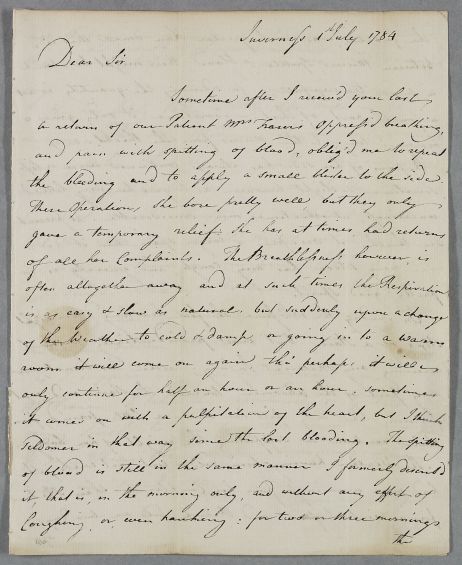 Inverness 1st July 1784
Dear Sir
Sometime after I receiv'd your last
a return of our Patient Mrs Frasers oppress'd breathing,
and pain with spitting of blood, oblig'd me to repeat
the bleeding and to apply a small blister to the side.
These operations she bore pretty well but they only
gave a temporary relief. She has at times had returns
of all her Complaints. The Breathlessness however is
often altogether away and at such times the Respiration
is as easy & slow as natural, but suddenly upon a change
of the Weather to cold & damp, or going in to a warm
room it will come on again tho' perhaps it will
only continue for half an hour or an hour, sometimes
it comes on with a palpitation of the heart, but I think
seldomer in that way since the last bleeding. The spitting
of blood is still in the same manner I formerly describ'd
it that is, in the morning only, and without any effort of
Coughing, or even hawking; for two or three mornings
the